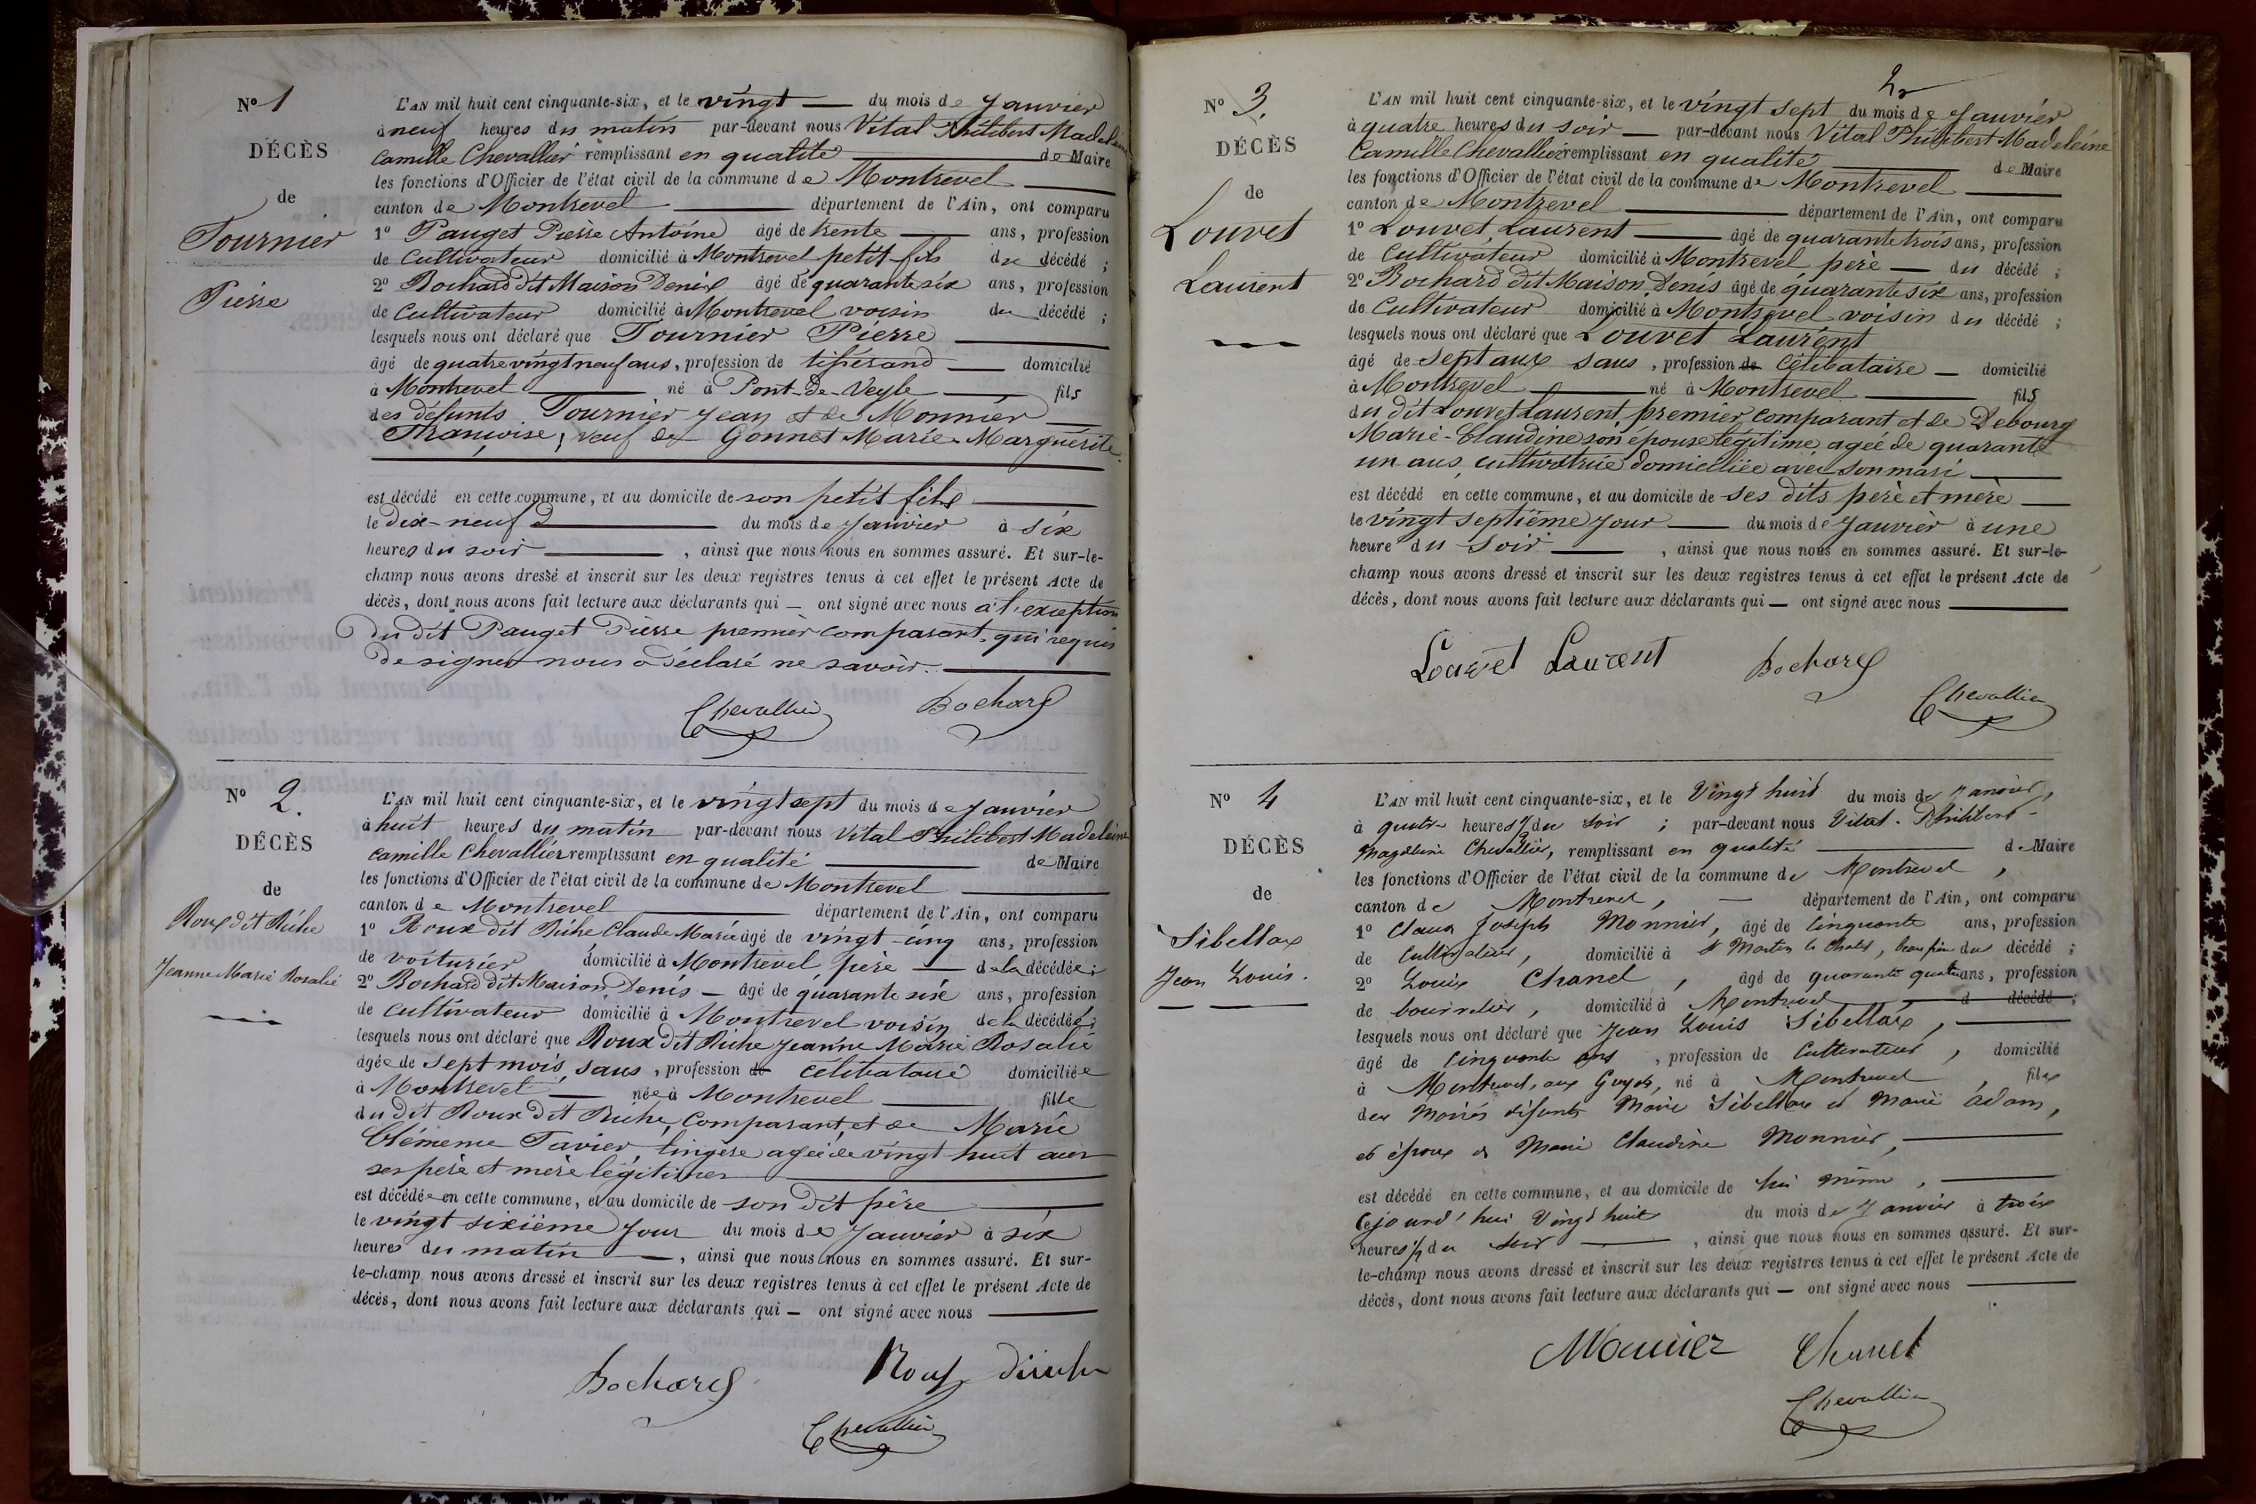 N° 1
DÉCÈS
de
Tournier
Pierre
L'AN mil huit cent cinquante-six, et le vingt du mois de Janvier
à neuf heures du matin par-devant nous Vital Philibert Madeleine
Camille Chevallier remplissant en qualité de Maire
les fonctions d'Officier de l'état civil de la commune de Montrevel
canton de Montrevel département de l'Ain, ont comparu
1° Pauget Pierre Antoine âgé de trente ans, profession
de Cultivateur domicilié à Montrevel petit-fils du décédé ;
2° Bochard dit Maison Denis âgé de quarante six ans, profession
de Cultivateur domicilié à Montrevel voisin du décédé ;
lesquels nous ont déclaré que Tournier Pierre
âgé de quatre vingt neuf ans, profession de tisserand domicilié
à Montrevel né à Pont-de-Veyle fils
des défunts Tournier Jean et de Monnier
Françoise, veuf de Gonnet Marie-Marguerite.
est décédé en cette commune, et au domicile de son petit fils
le Dix-neuf du mois de Janvier à six
heures du soir , ainsi que nous nous en sommes assuré. Et sur-le-
champ nous avons dressé et inscrit sur les deux registres tenus à cet effet le présent Acte de
décès, dont nous avons fait lecture aux déclarants qui — ont signé avec nous à l'exception
du dit Pauget Pierre premier comparant, qui requis
de signer nous a déclaré ne savoir.
Chevallier Bochard
N° 2.
DÉCÈS
de
Roux dit Riche
Jeanne Marie Rosalie
L'AN mil huit cent cinquante-six, et le vingt sept du mois de Janvier
à huit heures du matin par-devant nous Vital Philibert Madeleine
Camille Chevallier remplissant en qualité de Maire
les fonctions d'Officier de l'état civil de la commune de Montrevel
canton de Montrevel département de l'Ain, ont comparu
1° Roux dit Riche Claude Marie âgé de vingt-cinq ans, profession
de voiturier domicilié à Montrevel père de la décédée ;
2° Bochard dit Maison Denis — âgé de quarante six ans, profession
de Cultivateur domicilié à Montrevel voisin de la décédée ;
lesquels nous ont déclaré que Roux dit Riche Jeanne Marie Rosalie
âgée de sept mois, sans, profession de célibataire domiciliée
à Montrevel née à Montrevel fille
du dit Roux dit Riche, comparant, et de Marie
Clémence Tavier lingère agée de vingt huit ans
ses père et mère légitimes
est décédée en cette commune, et au domicile de son dit père
le vingt sixième jour du mois de Janvier à six
heures du matin , ainsi que nous nous en sommes assuré. Et sur-
le-champ nous avons dressé et inscrit sur les deux registres tenus à cet effet le présent Acte de
décès, dont nous avons fait lecture aux déclarants qui — ont signé avec nous
Bochard Roux
Chevallier
2
N° 3.
DÉCÈS
de
Louvet
Laurent
L'AN mil huit cent cinquante-six, et le vingt sept du mois de Janvier
à quatre heures du soir — par-devant nous Vital Philibert Madeleine
Camille Chevallier remplissant en qualité de Maire
les fonctions d'Officier de l'état civil de la commune de Montrevel
canton de Montrevel département de l'Ain, ont comparu
1° Louvet, Laurent âgé de quarante trois ans, profession
de Cultivateur domicilié à Montrevel père — du décédé ;
2° Bochard dit Maison Denis âgé de quarante six ans, profession
de Cultivateur domicilié à Montrevel voisin du décédé ;
lesquels nous ont déclaré que Louvet Laurent
âgé de sept ans sans , profession de Célibataire — domicilié
à Montrevel né à Montrevel fils
du dit Louvet Laurent, premier comparant et de Debourg
Marie-Claudine son épouse légitime agée de quarante
un ans, cultivatrice domiciliée avec son mari
est décédé en cette commune, et au domicile de ses dits père et mère
le vingt septième jour du mois de Janvier à une
heure du soir , ainsi que nous nous en sommes assuré. Et sur-le-
champ nous avons dressé et inscrit sur les deux registres tenus à cet effet le présent Acte de
décès, dont nous avons fait lecture aux déclarants qui — ont signé avec nous
Louvet Laurent Bochard
Chevallier
N° 4
DÉCÈS
de
Sibellax
Jean Louis.
L'AN mil huit cent cinquante-six, et le Vingt huit du mois de Janvier,
à quatre heures ½ du soir ; par-devant nous Vital Philibert
Magdeleine Chevallier, remplissant en qualité de Maire
les fonctions d'Officier de l'état civil de la commune de Montrevel ,
canton de Montrevel, — département de l'Ain, ont comparu
1° Claude Joseph Monnier, âgé de Cinquante ans, profession
de Cultivateur, domicilié à St Martin le Chatel, beau frère du décédé ;
2° Louis Chanel , âgé de quarante quatre ans, profession
de bourrelier, domicilié à Montrevel d décédé ;
lesquels nous ont déclaré que Jean Louis Sibellax ,
âgé de Cinquante ans , profession de Cultivateur , domicilié
à Montrevel, aux Guyots, né à Montrevel , fils
des Mariés défunts Marie Sibellax et Marie Adam,
et époux de Marie Claudine Monnier,
est décédé en cette commune, et au domicile de lui même ,
Cejourd'hui Vingt huit du mois de Janvier à trois
heures ½ du soir , ainsi que nous nous en sommes assuré. Et sur-
le-champ nous avons dressé et inscrit sur les deux registres tenus à cet effet le présent Acte de
décès, dont nous avons fait lecture aux déclarants qui — ont signé avec nous
Monnier Chanel
Chevallier